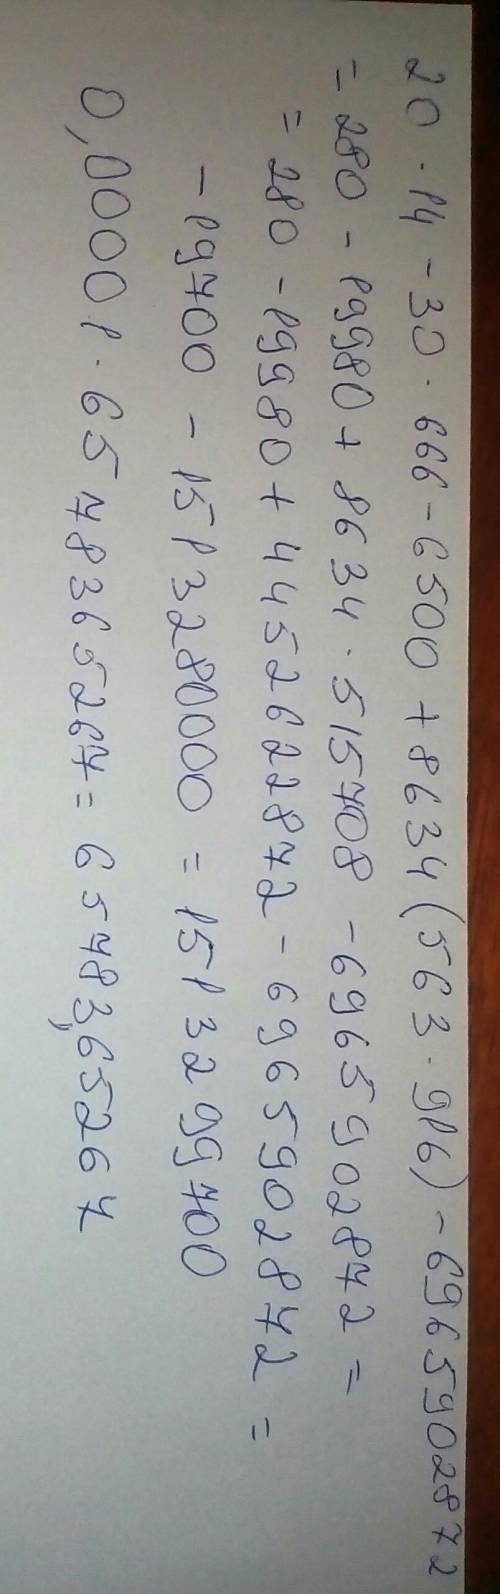 20 · 14 - 30 · 666 - 6500 + 8634 (563 · 916) - 6965902872
= 280 - 19980 + 8634 · 515708 - 6965902872 =
= 280 - 19980 + 4452622872 - 6965902872 =
- 19700 - 1513280000 = 1513299700
0,00001 · 6547836526 7 = 65483,65267